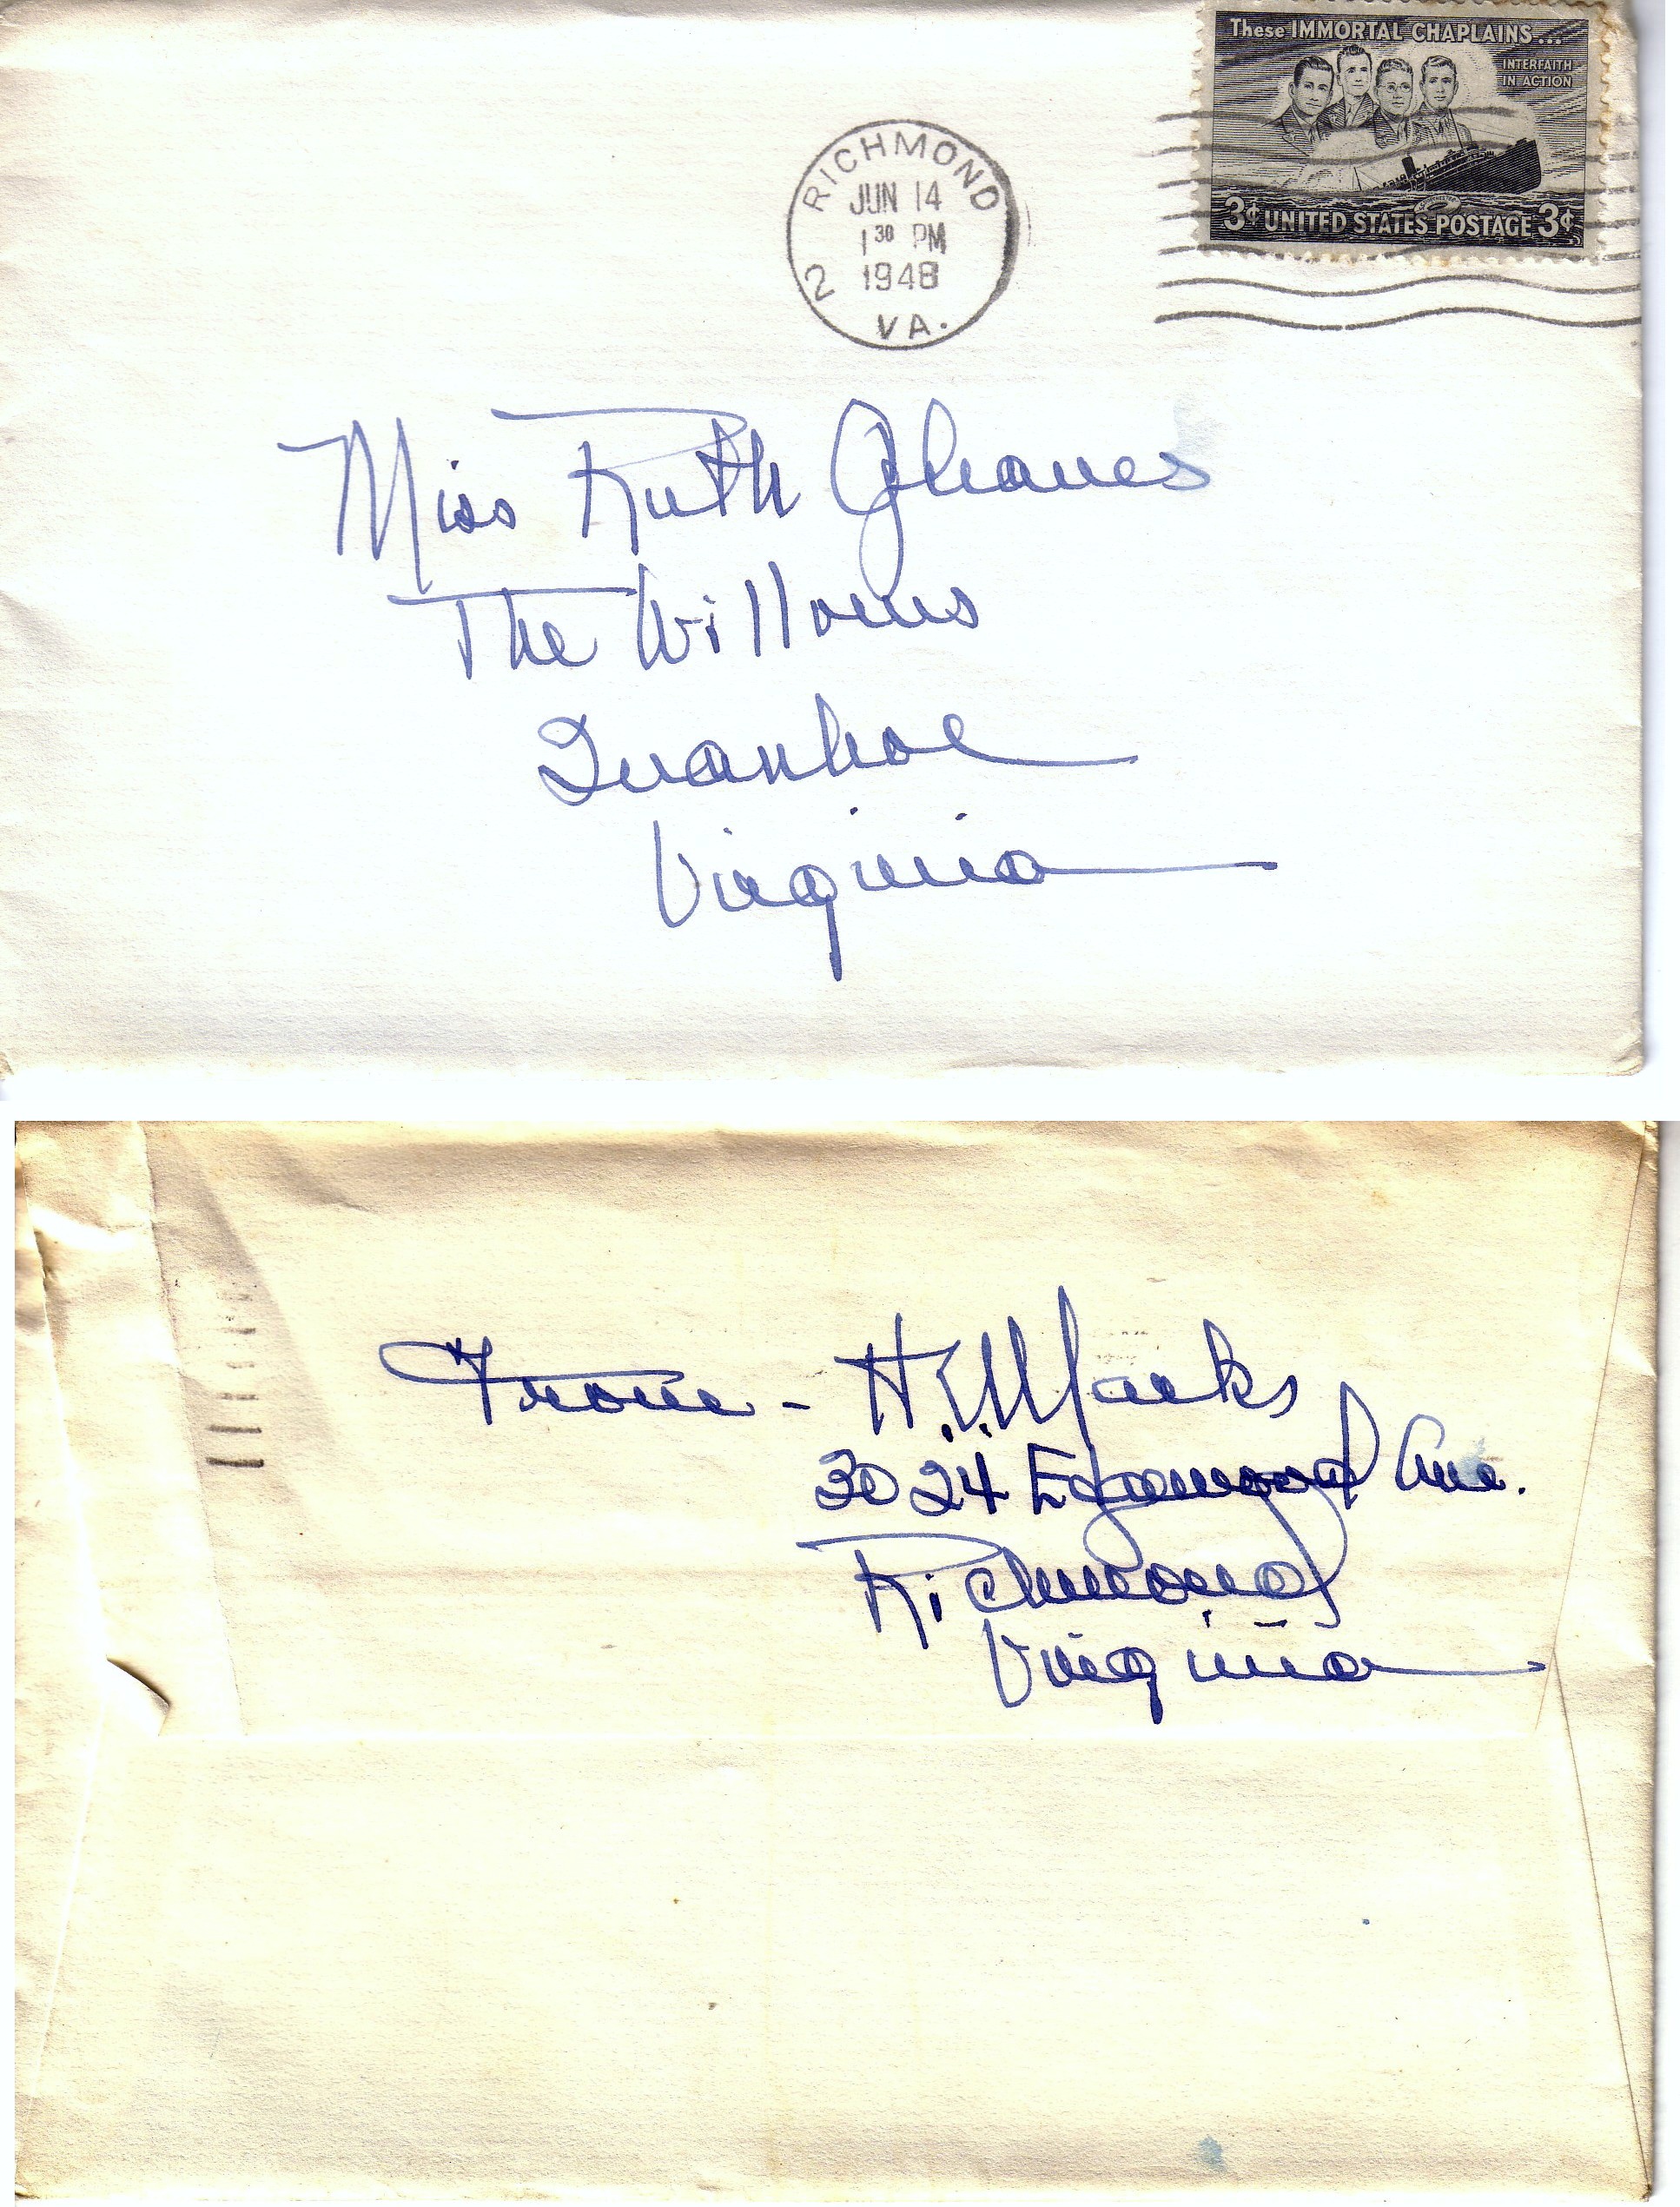 These IMMORTAL CHAPLAINS...
INTERFAITH
IN ACTION
3¢ UNITED STATES POSTAGE 3¢
RICHMOND
JUN 14
1 30 PM
1948
2
VA.
Miss Ruth Gleaves
The Willows
Ivanhoe
Virginia
From - H. Marks
3024 Edgewood Ave.
Richmond
Virginia